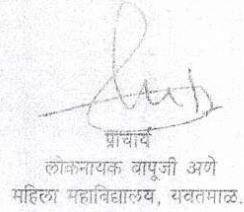 प्राचार्य
लोकनायक बापूजी अणे
महिला महाविद्यालय, यवतमाळ.